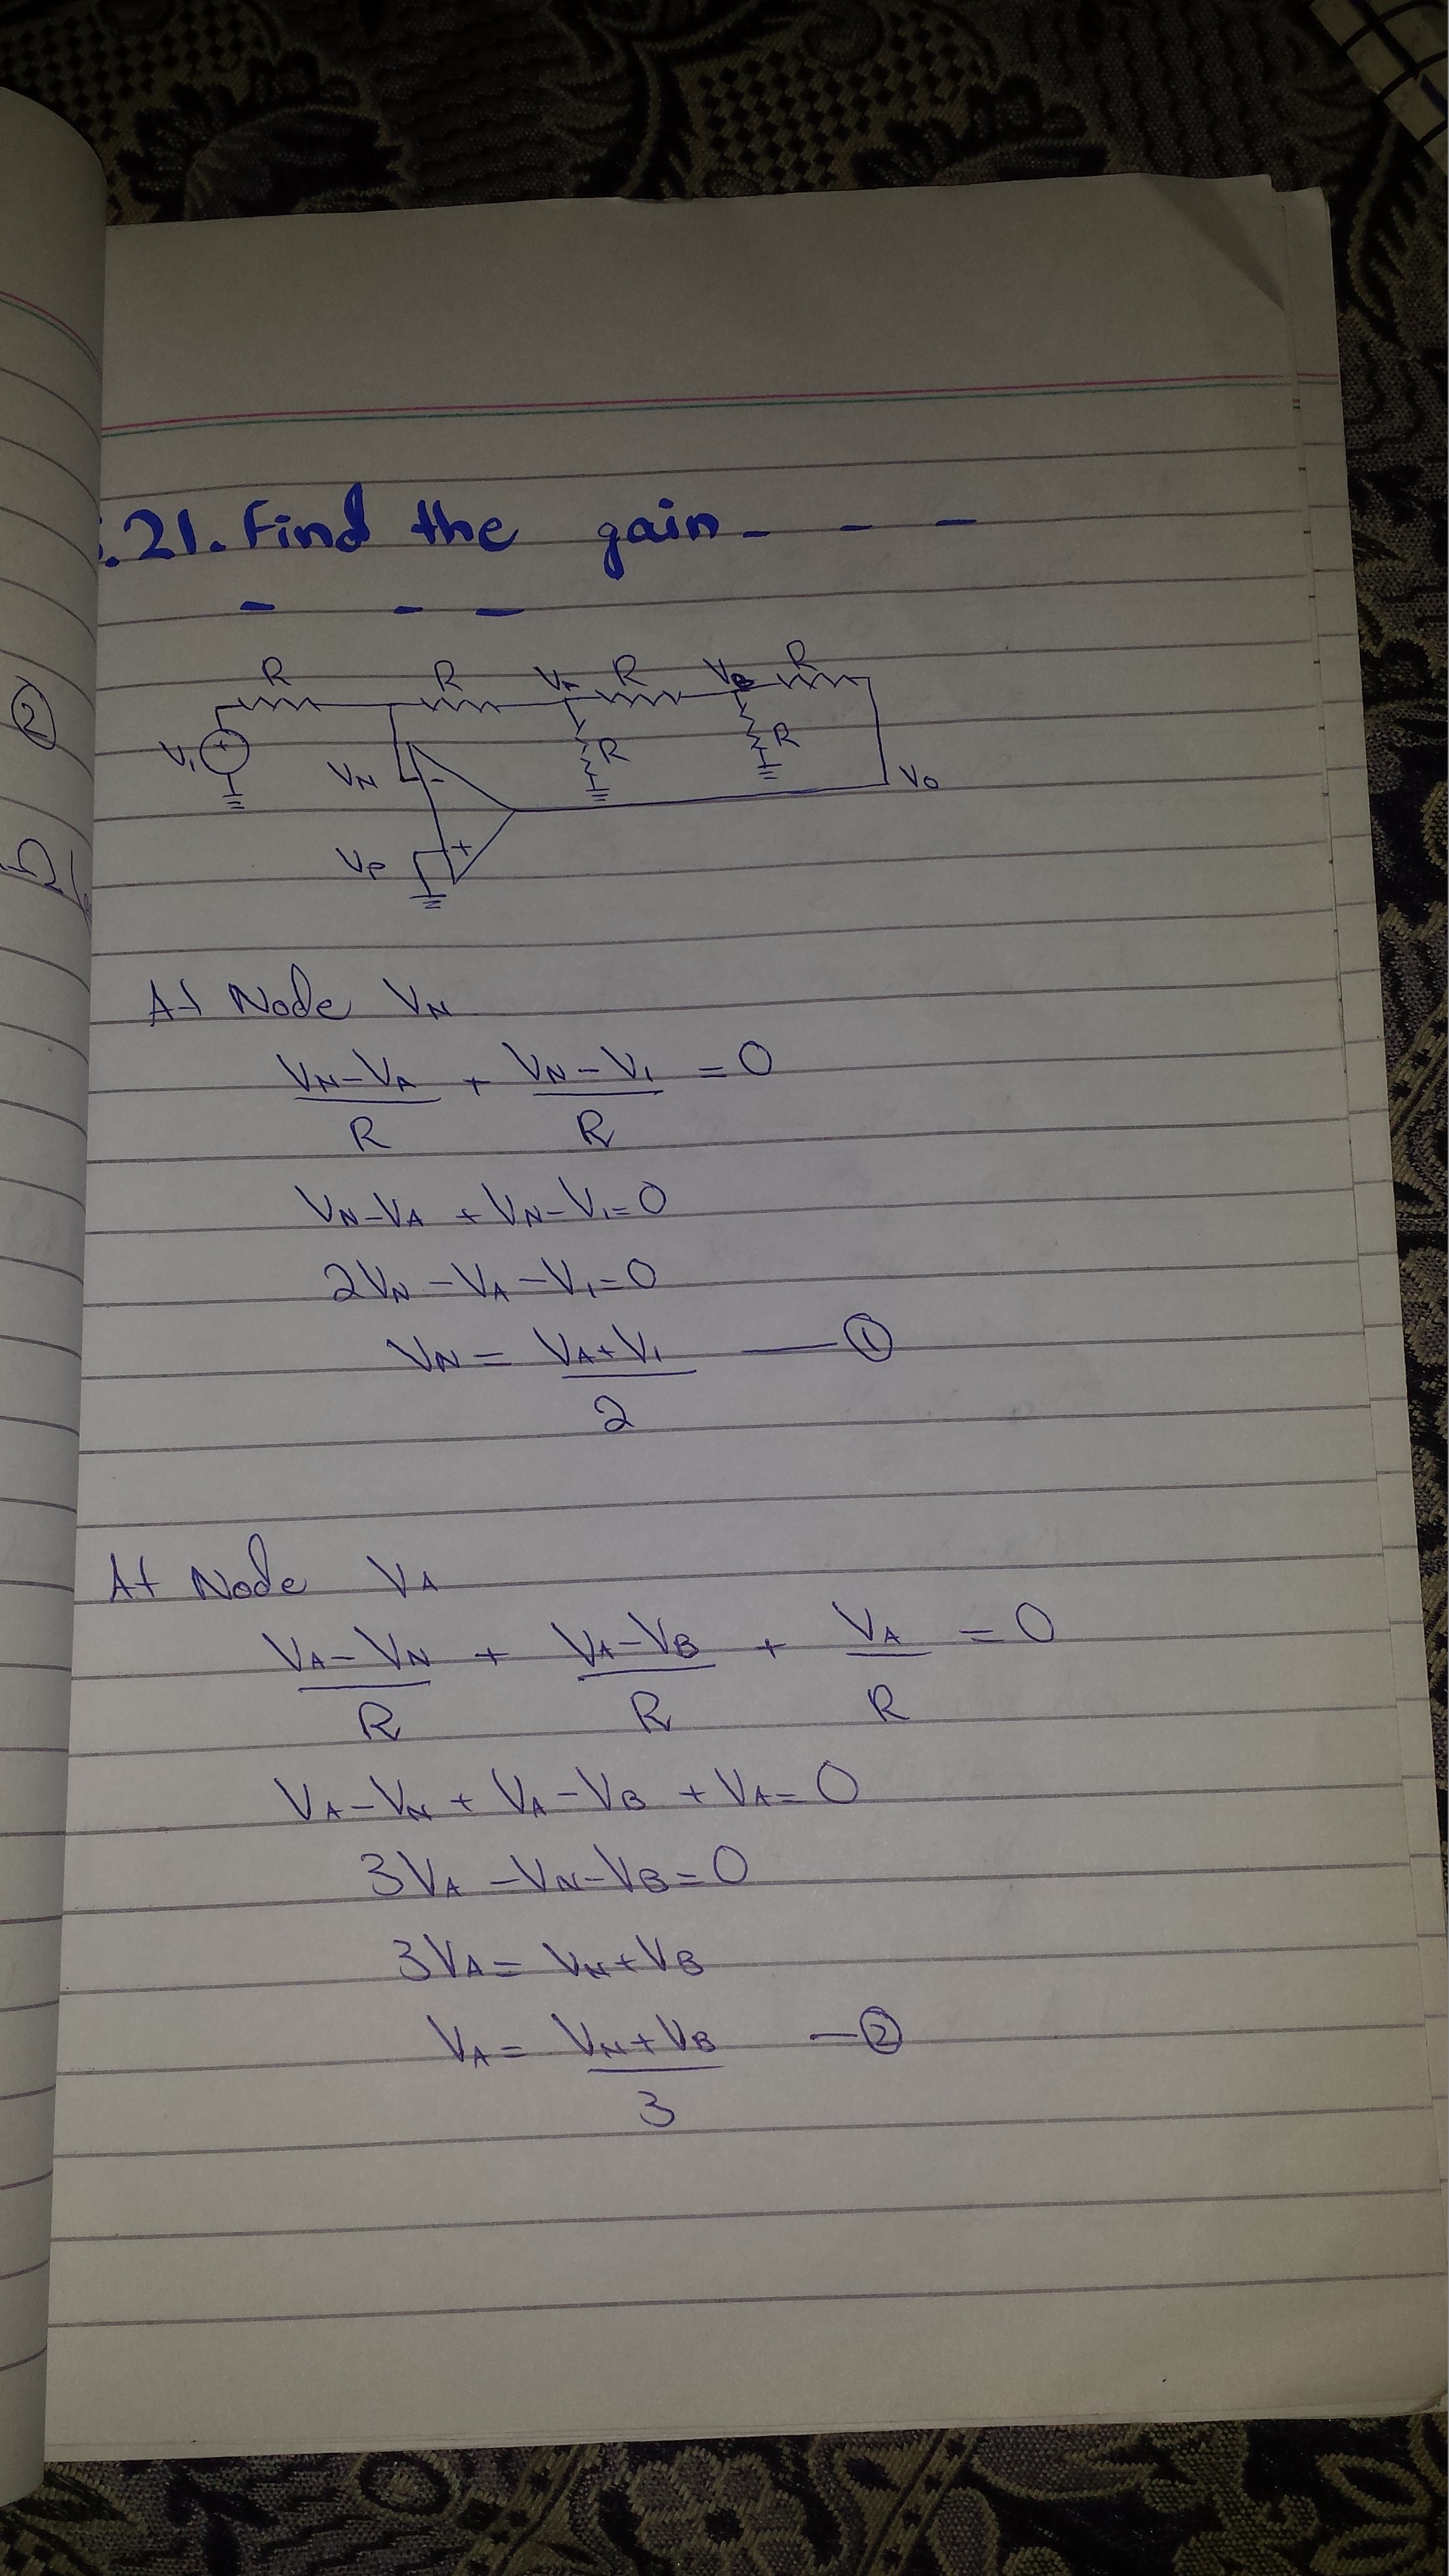 .21. Find the gain - - -
- - -
R R VA R VB R
V1 + R R
VN - VO
VP +
②
Ω
At Node VN
VN-VA/R + VN-V1/R = 0
VN-VA + VN-V1=0
2VN-VA-V1=0
VN = VA+V1/2 — ①
At Node VA
VA-VN/R + VA-VB/R + VA/R = 0
VA-VN + VA-VB + VA=0
3VA-VN-VB=0
3VA= VN+VB
VA= VN+VB/3 — ②